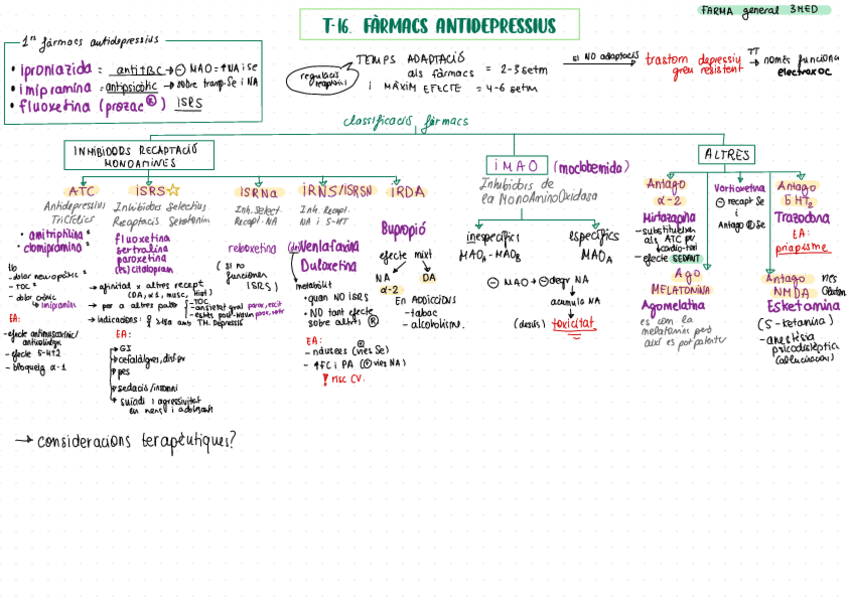 FARMA general 3MED
T-16. FÀRMACS ANTIDEPRESSIUS
1rs fàrmacs antidepressius
• iproniazida = antiTBC → ⊖ MAO = ↑NA i Se
• imipramina = antipsicòtic → sobre transp. Se i NA
• fluoxetina (prozac ®) ISRS
regulació receptors!
TEMPS ADAPTACIÓ
als fàrmacs = 2-3 setm
i MÀXIM EFECTE = 4-6 setm
si NO adaptació
trastorn depressiu
greu resistent
TT
→ només funciona
electroxoc
classificació fàrmacs
INHIBIDORS RECAPTACIÓ
MONOAMINES
ATC
Antidepressius
Tricíclics
• amitriptilina
• clomipramina
- dolor neuropàtic
- TOC
- dolor crònic
↳ imipramina
EA:
- efecte antimuscarínic/
anticolinèrgic
- efecte 5-HT2
- bloqueig α-1
ISRS
Inhibidors Selectius
Recaptació Serotonina
fluoxetina
sertralina
paroxetina
(es)citalopram
→ afinitat x altres recept
(DA, α1, musc, hist)
→ per a altres patol
- TOC
→ indicacions:
EA:
GI
cefalàlgies, disf sex
pes
sedació/insomni
suïcidi i agressivitat
en nens i adolesc
ISRNa
Inh. Select.
Recapt. NA
reboxetina
(si no
funcionen
ISRS)
IRNS/ISRSN
Inh. Recapt.
NA i 5-HT
(des)Venlafaxina
Duloxetina
metabòlit
• quan NO ISRS
• NO tant efecte
sobre altres ®
EA:
- nàusees (vies Se)
- ↑FC i PA (⊕ vies NA)
! risc CV.
IRDA
Bupropió
efecte mixt
NA DA
α-2
En ADDICCIONS
- tabac
- alcoholisme.
iMAO (moclobemida)
Inhibidors de
la MonoAminoOxidasa
inespecífics
MAOA - MAOB
específics
MAOA
⊖ MAO → ⊖ degr NA
acumula NA
(desús) toxicitat
ALTRES
Antago
α-2
Mirtazapina
- substitueixen
als ATC per
↓cardio-toxi
- efecte SEDANT
Ago
MELATONINA
Agomelatina
és com la
melatonina però
així és pot patentar
Vortioxetina
⊖ recapt Se
i
Antago ® Se
Antago
5HT2
Trazodona
EA:
priapisme
Antago
NMDA
Esketamina
(S-ketamina)
- anestèsia
psicodislèptica
(al·lucinacions)
→ consideracions terapèutiques?